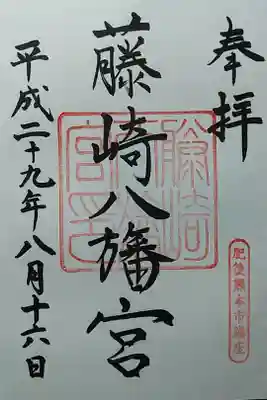 奉拝
藤崎八旛宮
平成二十九年八月十六日
藤崎八旛宮印
肥後熊本市鎮座